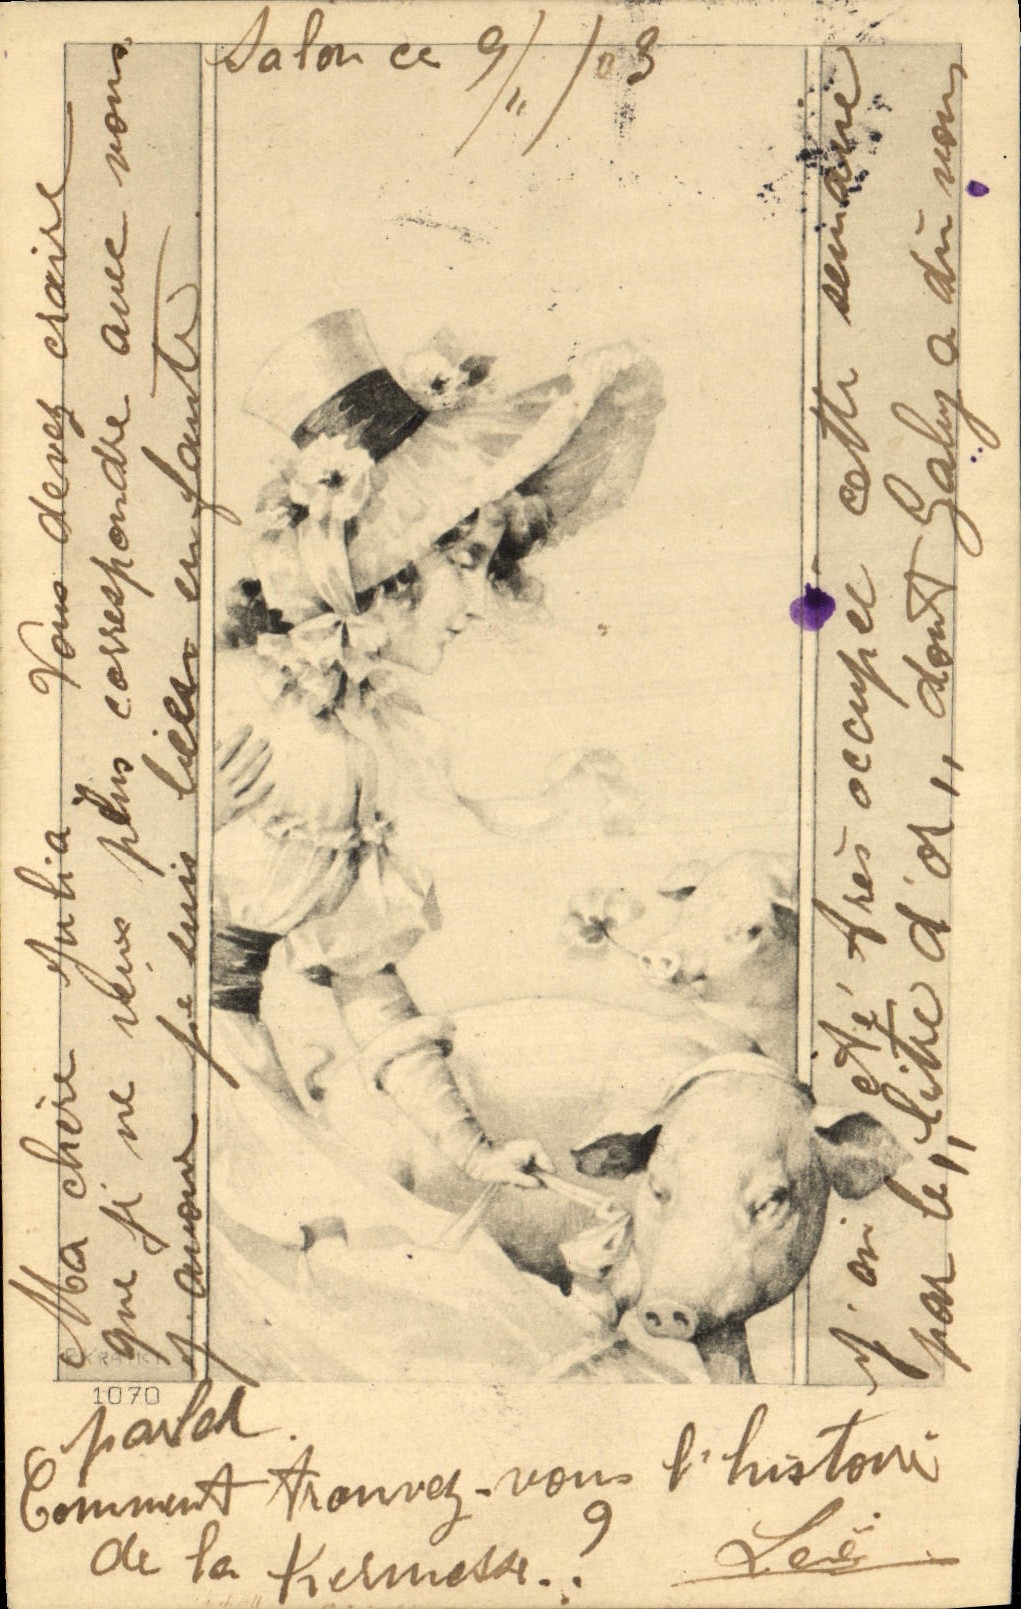 Salon ce 9/11/03
Ma chère Julia Vous devez craire
que ji ne veus plus correspondre avec vous
j'avoue je suis bien en faute
j'ai été très occupée cette semaine
par le ,, litre d'or ,, dont Gaby a du vous
parler.
Comment trouvez-vous l'histoire
de la Kermesse..?
1070